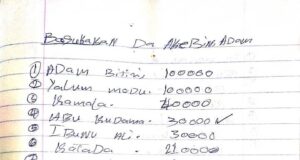 Basukakan Da Akebin Adam
① Adam Bitin 100000
② Yalum modu 100000
③ Kamala 40000
④ Abu Kudama 30000 ✓
⑤ Ibunu Ali 30000
⑥ Kolada 210000